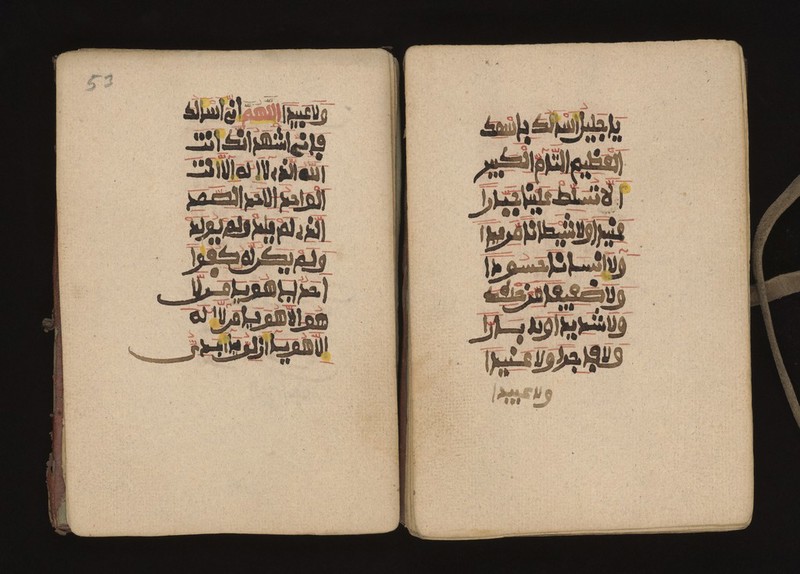 يا جليل اسالك باسمك
العظيم التام الكبير
ا لا تسلط علينا جبارا
عنيدا ولا شيطانا مريدا
ولا انسانا حسودا
ولا ضعيفا من خلقك
ولا شديدا ولا بارا
ولا فاجرا ولا عنيدا
ولا عبيدا
53
ولا عبيدا اللهم اني اسالك
فاني اشهد انك انت
الله الذي لا اله الا انت
الواحد الاحد الصمد
الذي لم يلد ولم يولد
ولم يكن له كفوا
احد يا هو يا من لا
هو الا هو يا من لا اله
الا هو يا ازلي يا ابدي